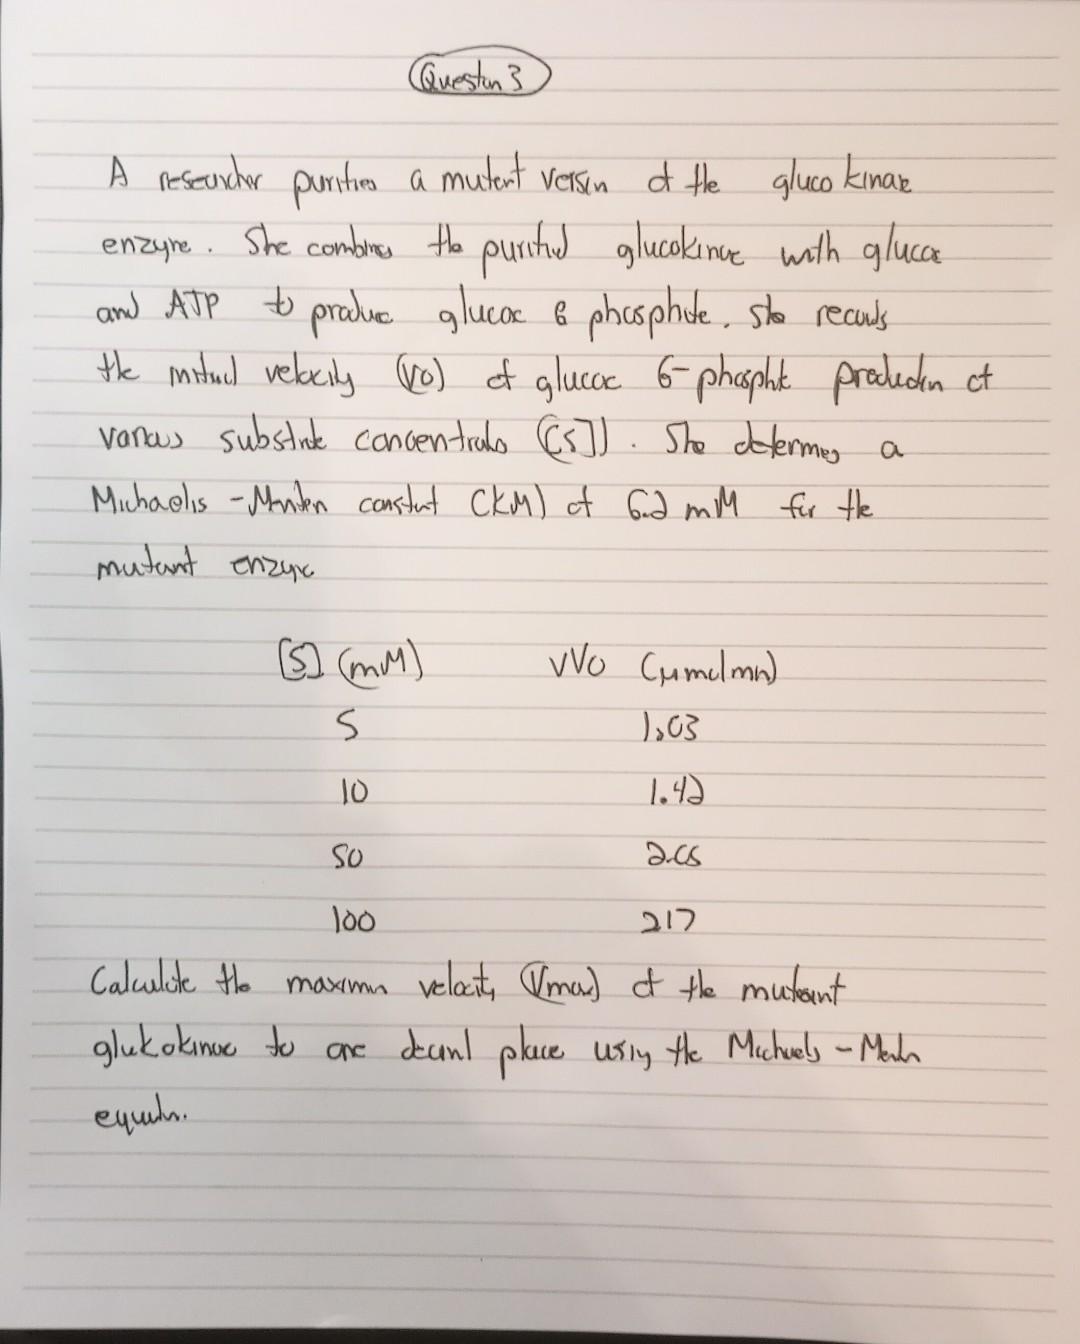 Question 3
A researcher purifies a mutant version of the gluco kinase
enzyme. She combines the purified glucokinase with glucose
and ATP to produce glucose 6 phosphate. She records
the initial velocity (V0) of glucose 6-phosphate production at
various substrate concentrations ([S]). She determines a
Michaelis-Menten constant (KM) of 6.2 mM for the
mutant enzyme
[S] (mM) VV0 (μmolmn)
5 1.03
10 1.42
50 2.05
100 217
Calculate the maximum velocity (Vmax) of the mutant
glukokinase to one decimal place using the Michaelis-Menten
equation.